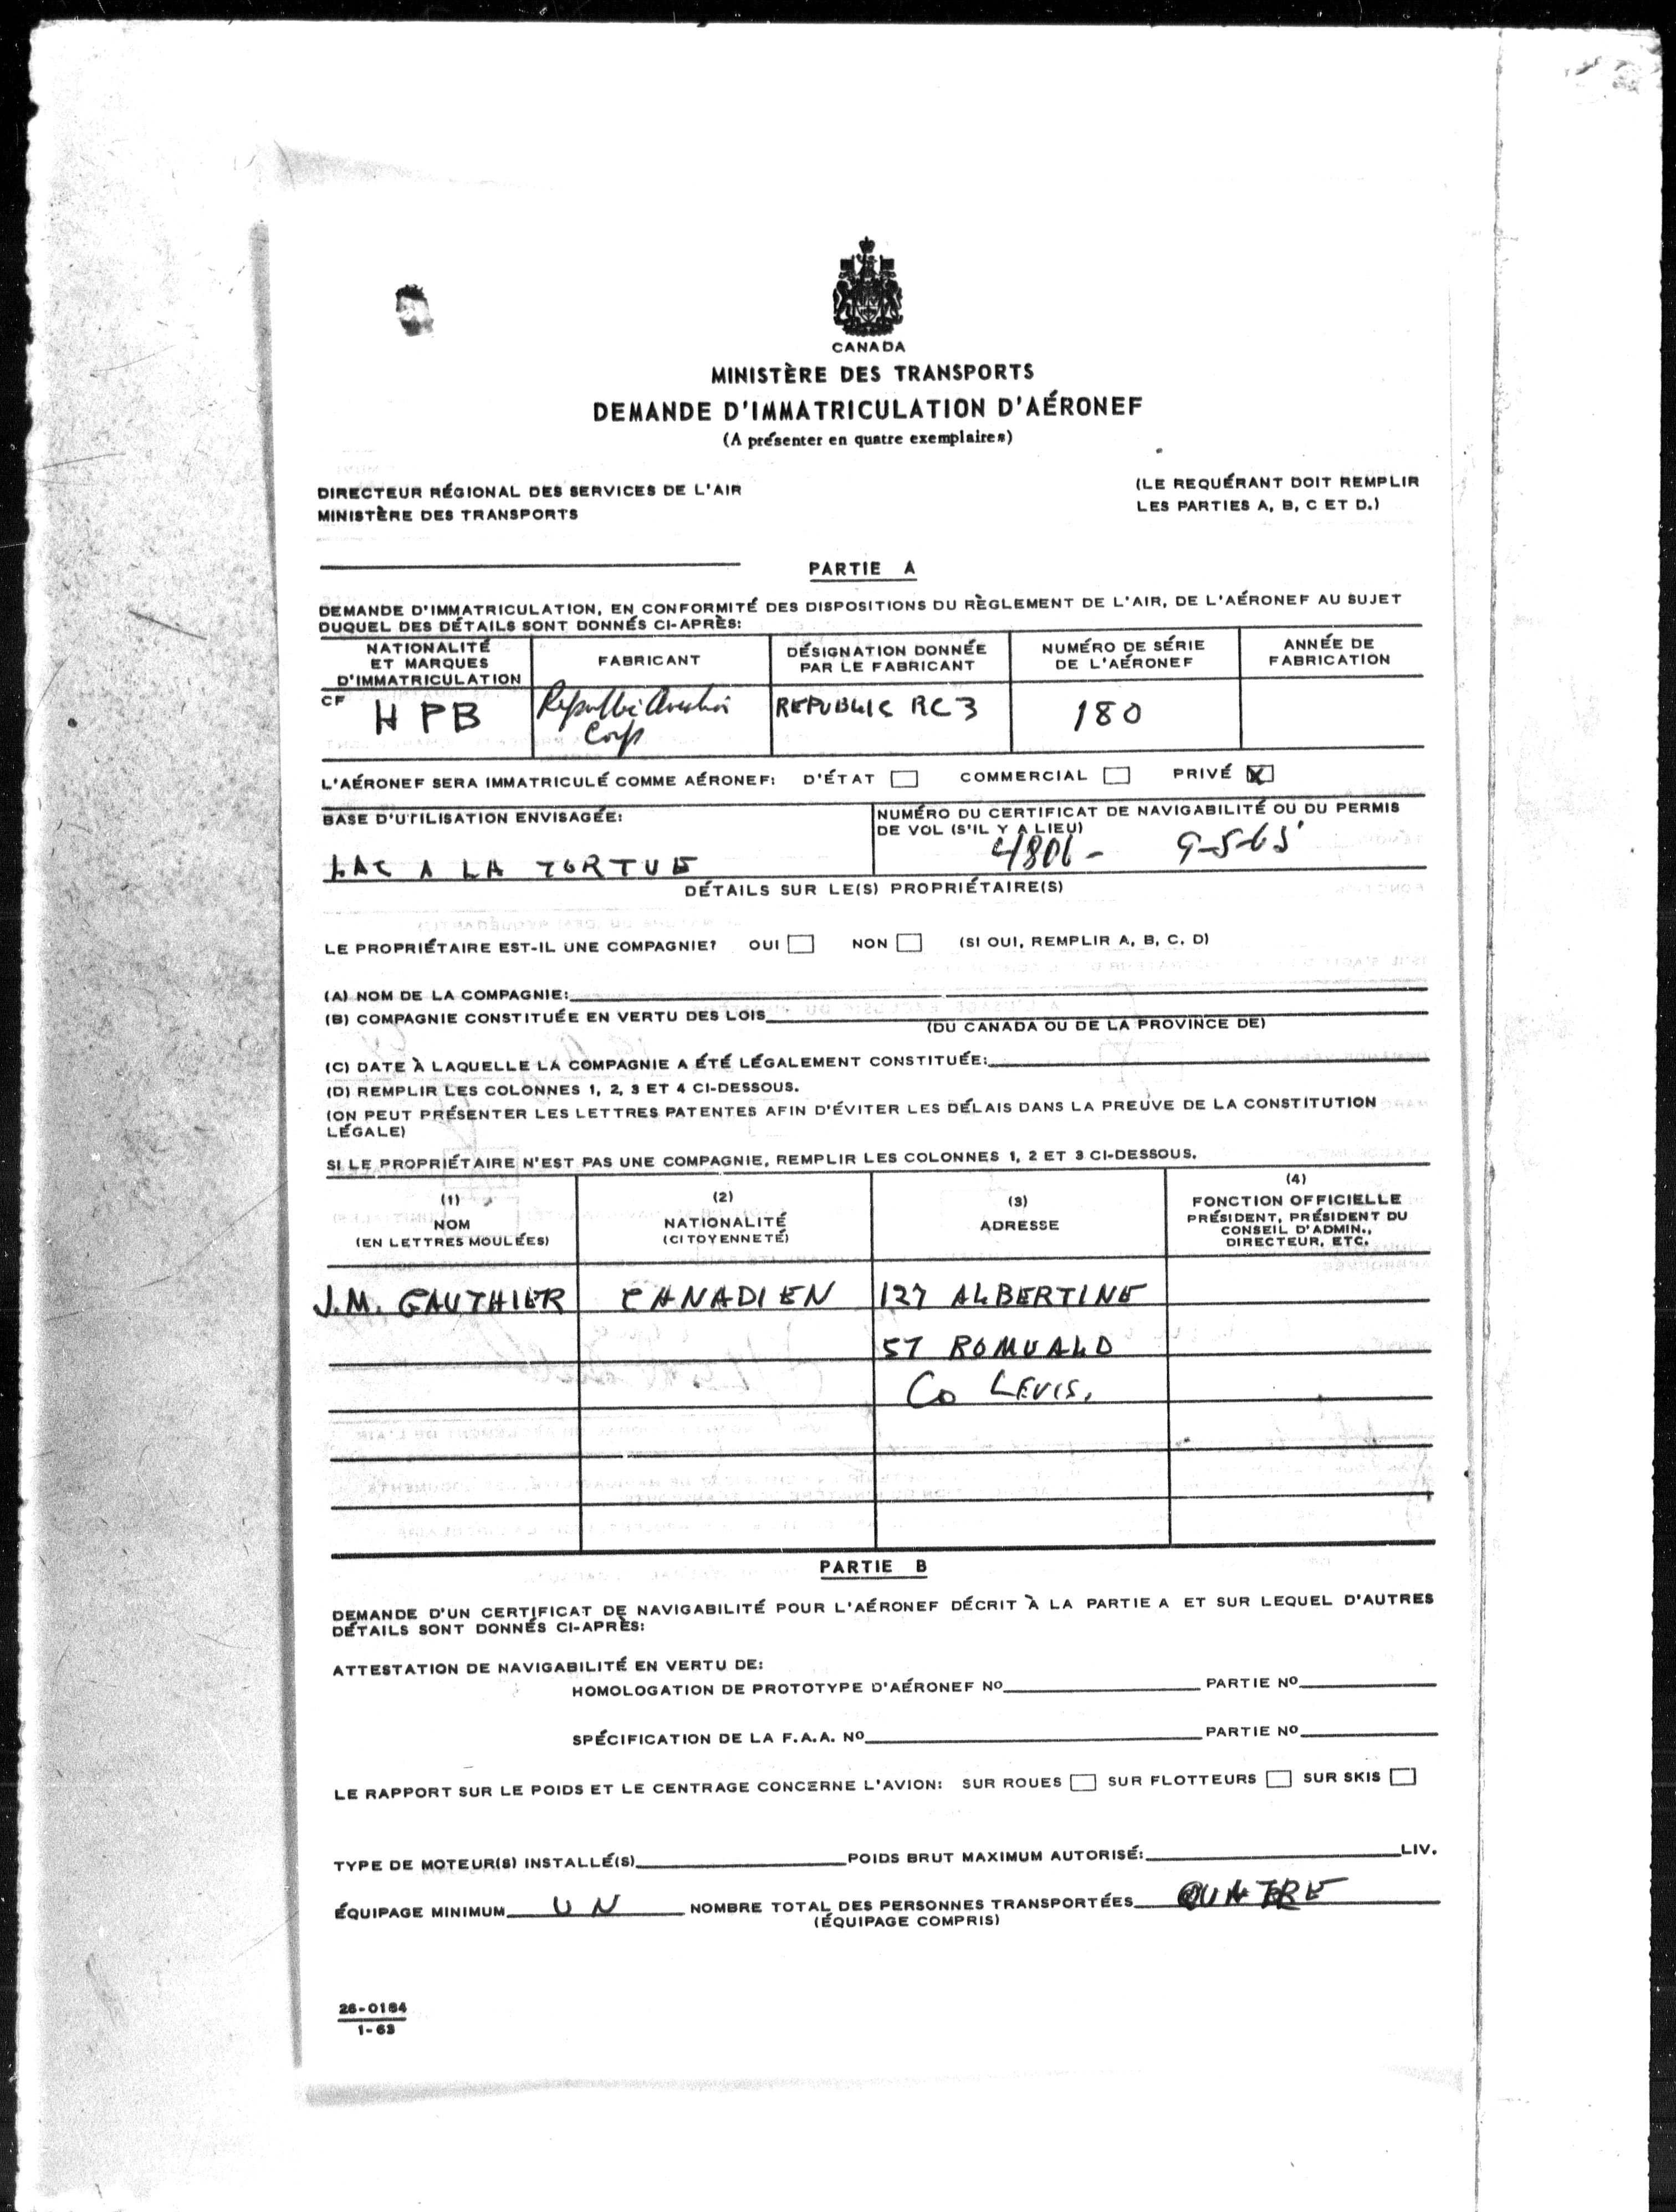 CANADA
MINISTÈRE DES TRANSPORTS
DEMANDE D'IMMATRICULATION D'AÉRONEF
(A présenter en quatre exemplaires)
DIRECTEUR RÉGIONAL DES SERVICES DE L'AIR
MINISTÈRE DES TRANSPORTS
(LE REQUÉRANT DOIT REMPLIR
LES PARTIES A, B, C ET D.)
PARTIE A
DEMANDE D'IMMATRICULATION, EN CONFORMITÉ DES DISPOSITIONS DU RÈGLEMENT DE L'AIR, DE L'AÉRONEF AU SUJET
DUQUEL DES DÉTAILS SONT DONNÉS CI-APRÈS:
NATIONALITÉ
ET MARQUES
D'IMMATRICULATION
FABRICANT
DÉSIGNATION DONNÉE
PAR LE FABRICANT
NUMÉRO DE SÉRIE
DE L'AÉRONEF
ANNÉE DE
FABRICATION
CF HPB
Republic Aviation
Corp
REPUBLIC RC3
180
L'AÉRONEF SERA IMMATRICULÉ COMME AÉRONEF: D'ÉTAT COMMERCIAL PRIVÉ X
BASE D'UTILISATION ENVISAGÉE:
LAC A LA TORTUE
NUMÉRO DU CERTIFICAT DE NAVIGABILITÉ OU DU PERMIS
DE VOL (S'IL Y A LIEU)
4806 - 9-5-65
DÉTAILS SUR LE(S) PROPRIÉTAIRE(S)
LE PROPRIÉTAIRE EST-IL UNE COMPAGNIE? OUI NON (SI OUI, REMPLIR A, B, C, D)
(A) NOM DE LA COMPAGNIE:
(B) COMPAGNIE CONSTITUÉE EN VERTU DES LOIS
(DU CANADA OU DE LA PROVINCE DE)
(C) DATE À LAQUELLE LA COMPAGNIE A ÉTÉ LÉGALEMENT CONSTITUÉE:
(D) REMPLIR LES COLONNES 1, 2, 3 ET 4 CI-DESSOUS.
(ON PEUT PRÉSENTER LES LETTRES PATENTES AFIN D'ÉVITER LES DÉLAIS DANS LA PREUVE DE LA CONSTITUTION
LÉGALE)
SI LE PROPRIÉTAIRE N'EST PAS UNE COMPAGNIE, REMPLIR LES COLONNES 1, 2 ET 3 CI-DESSOUS.
(1)
NOM
(EN LETTRES MOULÉES)
(2)
NATIONALITÉ
(CITOYENNETÉ)
(3)
ADRESSE
(4)
FONCTION OFFICIELLE
PRÉSIDENT, PRÉSIDENT DU
CONSEIL D'ADMIN.,
DIRECTEUR, ETC.
J.M. GAUTHIER CANADIEN 127 ALBERTINE
ST ROMUALD
Co LEVIS.
PARTIE B
DEMANDE D'UN CERTIFICAT DE NAVIGABILITÉ POUR L'AÉRONEF DÉCRIT À LA PARTIE A ET SUR LEQUEL D'AUTRES
DÉTAILS SONT DONNÉS CI-APRÈS:
ATTESTATION DE NAVIGABILITÉ EN VERTU DE:
HOMOLOGATION DE PROTOTYPE D'AÉRONEF NO PARTIE NO
SPÉCIFICATION DE LA F.A.A. NO PARTIE NO
LE RAPPORT SUR LE POIDS ET LE CENTRAGE CONCERNE L'AVION: SUR ROUES SUR FLOTTEURS SUR SKIS
TYPE DE MOTEUR(S) INSTALLÉ(S) POIDS BRUT MAXIMUM AUTORISÉ: LIV.
ÉQUIPAGE MINIMUM UN NOMBRE TOTAL DES PERSONNES TRANSPORTÉES QUATRE
(ÉQUIPAGE COMPRIS)
26-0184
1-63